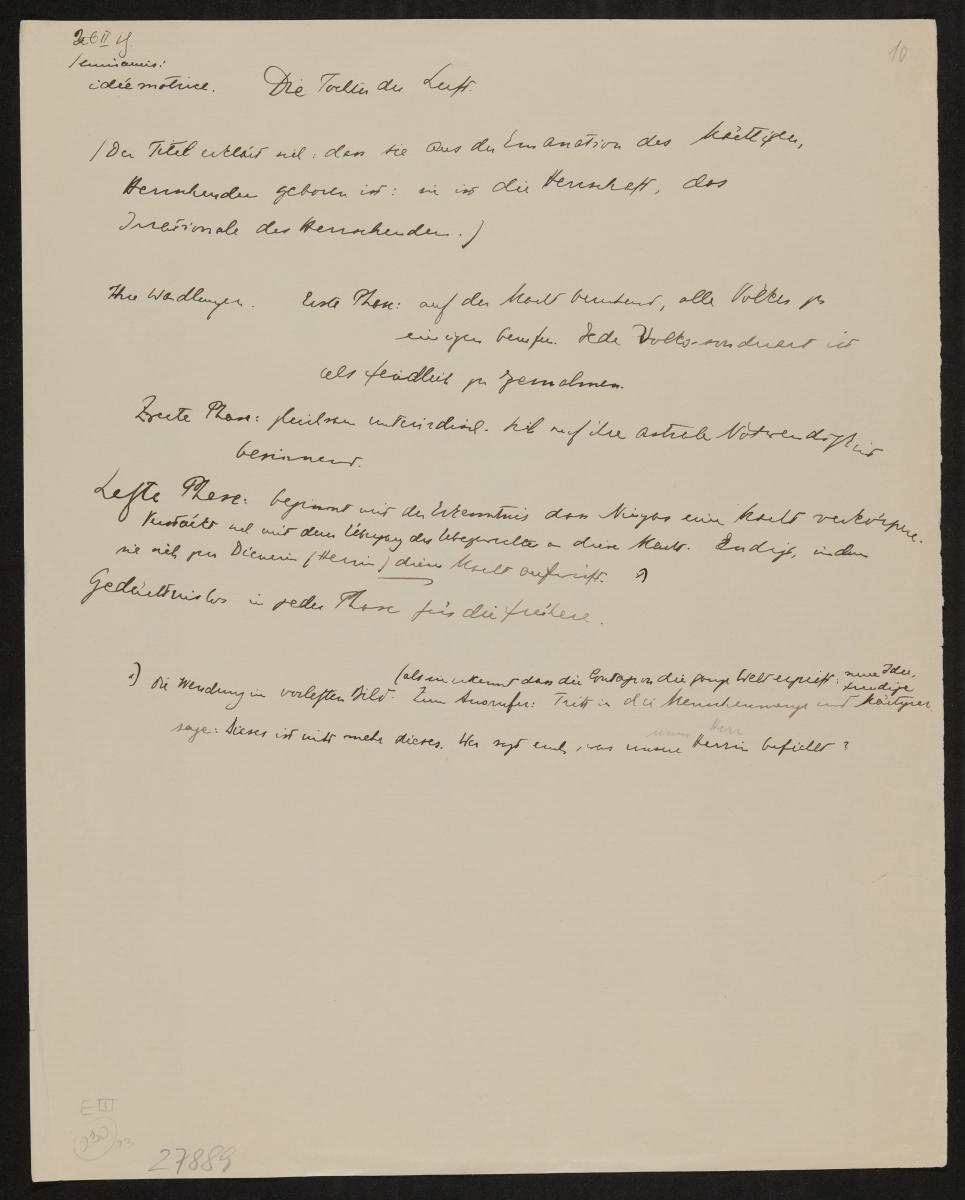 26 II 19.
Semiramis:
idée motrice. Die Tochter der Luft.
10
(Der Titel erklärt sich: dass sie aus der Emanation des Mächtigen,
Herrschenden geboren ist: sie ist die Herrschaft, das
Irrationale des Herrschenden.)
Ihre Wandlungen. Erste Phase: auf der Macht beruhend, alle Völker zu
einigen berufen. Jede Volks-sonderart ist
als feindlich zu zermalmen.
Zweite Phase: gleichsam unterirdisch. Sich auf ihre astrale Notwendigkeit
besinnend.
Letzte Phase: beginnt mit der Erkenntnis dass Ninyas eine Macht verkörpere.
Verstärkt sich mit dem Übergang des Übergewichts an diese Macht. Endigt, indem
sie sich zur Dienerin (Herrin) dieser Macht aufwirft. 1)
Gedächtnislos in jeder Phase für die frühere.
1) Die Wendung im vorletzten Bild. (als sie erkennt dass die Contagion die ganze Welt ergreift: neue Idee,
freudige
Zum Ausrufer: Tritt in die Menschenmenge und Märtyrer.
unser Herr
sage: Dieses ist nicht mehr dieses. Wer sagt euch, was unsere Herrin befiehlt?
E III
230
27889